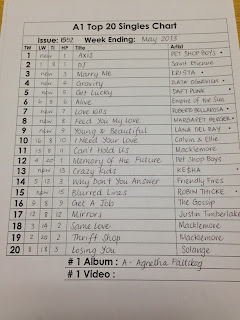 A1 Top 20 Singles Chart
Issue: Week Ending: May 2013
TW LW TI HP Title Artist
1 new 1 1 Axis PET SHOP BOYS •
2 1 DJ Saint Etienne
3 new 1 3 Marry Me KRISTA •
4 new 1 4 Gravity
5 new 1 5 Get Lucky DAFT PUNK •
6 6 8 6 Alive Empire of the Sun
7 new 1 7 Love Kills
8 New 1 8 Feed You My Love MARGARET BERGER •
9 new 1 9 Young & Beautiful LANA DEL RAY •
10 16 8 10 I Need Your Love Calvin & Ellie
11 13 8 11 Can't Hold Us Macklemore
12 4 20 1 Memory of the Future Pet Shop Boys
13 new 1 13 Crazy Kids KE$HA •
14 5 12 3 Why Don't You Answer Friendly Fires
15 new 1 15 Blurred Lines ROBIN THICKE •
16 9 8 9 Get A Job The Gossip
17 12 8 12 Mirrors Justin Timberlake
18 3 14 2 Same Love Macklemore
19 2 20 2 Thrift Shop Macklemore
20 8 18 3 Losing You Solange
# 1 Album : A - Agnetha Faltskog
# 1 Video :